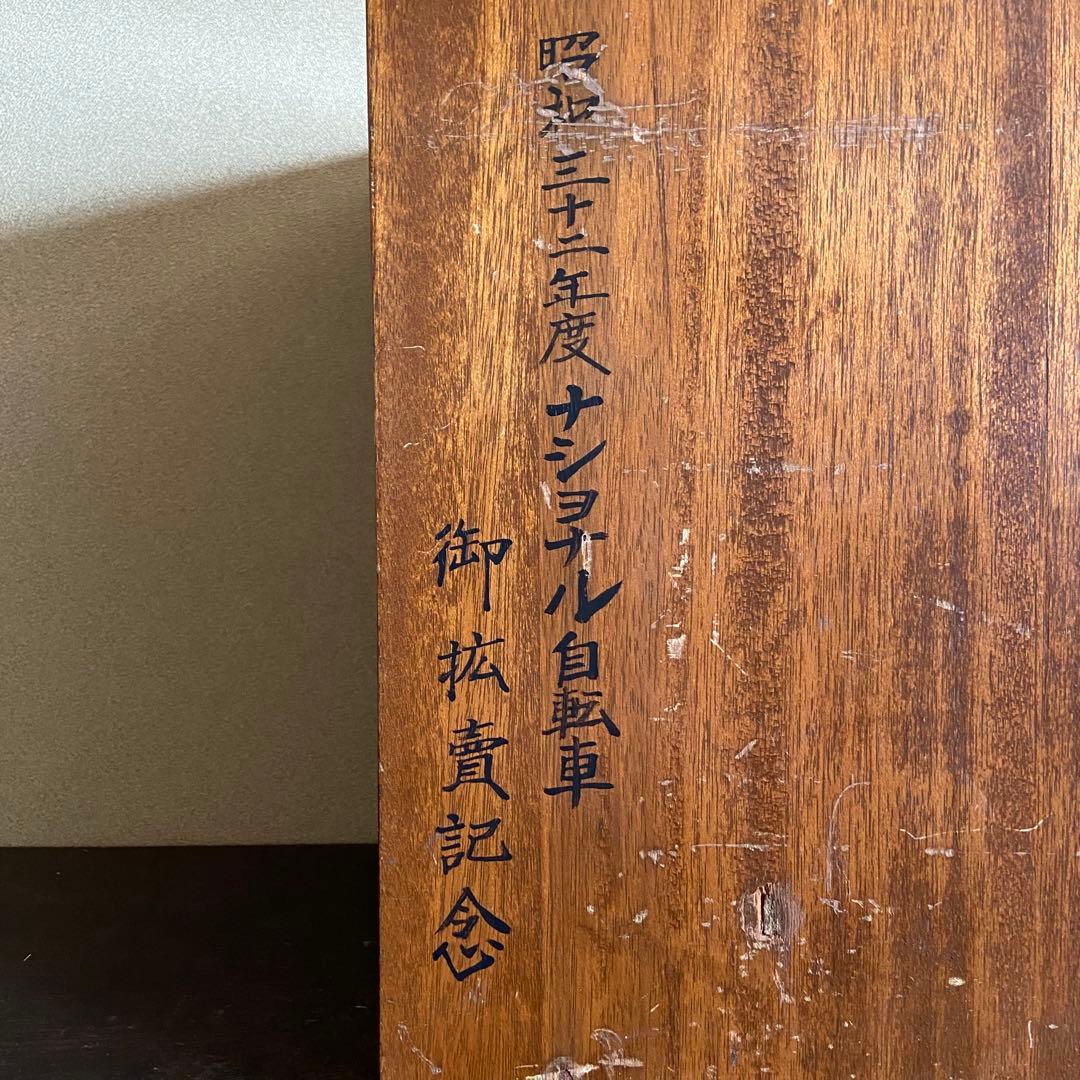 昭和三十二年度ナショナル自転車
御拡賣記念